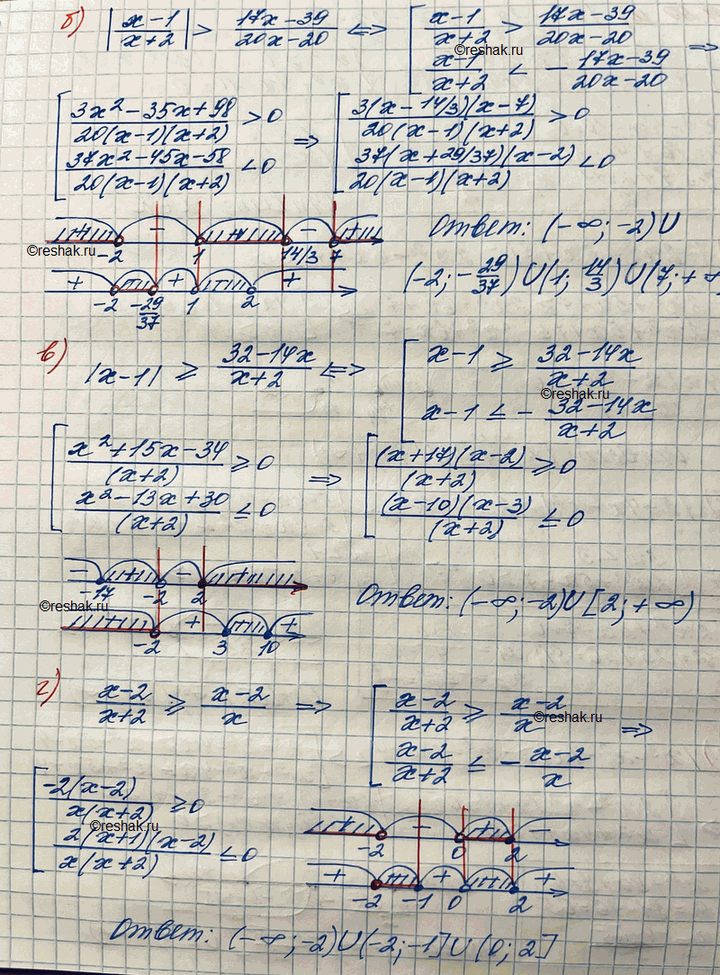 б) |x-1/x+2| > 17x-39/20x-20 <=> [ x-1/x+2 > 17x-39/20x-20
x-1/x+2 < - 17x-39/20x-20 =>
©reshak.ru
[ 3x²-35x+98/20(x-1)(x+2) > 0
37x²-45x-58/20(x-1)(x+2) < 0
=> [ 3(x-14/3)(x-7)/20(x-1)(x+2) > 0
37(x+29/37)(x-2)/20(x-1)(x+2) < 0
+ - + - +
-2 1 14/3 7
©reshak.ru
+ - + - +
-2 -29/37 1 2
Ответ: (-∞; -2) U
(-2; -29/37) U (1; 14/3) U (7; +∞
в) |x-1| ≥ 32-14x/x+2 <=> [ x-1 ≥ 32-14x/x+2
©reshak.ru
x-1 ≤ - 32-14x/x+2
[ x²+15x-34/(x+2) ≥ 0
x²-13x+30/(x+2) ≤ 0
=> [ (x+17)(x-2)/(x+2) ≥ 0
(x-10)(x-3)/(x+2) ≤ 0
- + - +
-17 -2 2
©reshak.ru
+ - +
-2 3 10
Ответ: (-∞; -2) U [2; +∞)
г) x-2/x+2 ≥ x-2/x => [ x-2/x+2 ≥ x-2/x
©reshak.ru
x-2/x+2 ≤ - x-2/x =>
[ -2(x-2)/x(x+2) ≥ 0
©reshak.ru
2(x+1)(x-2)/x(x+2) ≤ 0
+ - + -
-2 0 2
+ - + - +
-2 -1 0 2
Ответ: (-∞; -2) U (-2; -1] U (0; 2]